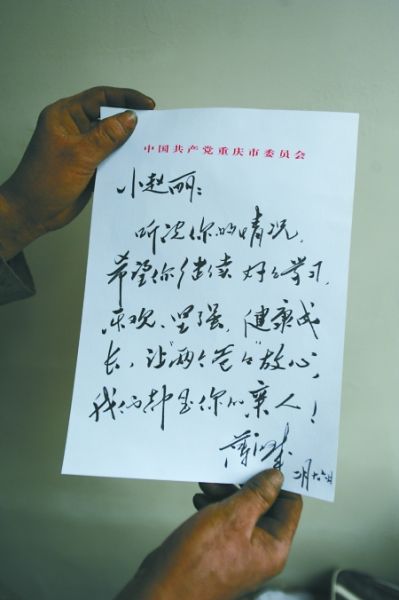 中国共产党重庆市委员会
小赵丽：
听说你的情况，
希望你继续好好学习，
乐观、坚强，健康成
长，让“两个爸爸”放心，
我们都是你的亲人！
薄熙来
二月十六日